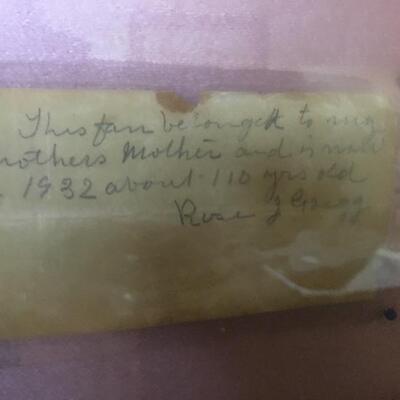 This fan belonged to my
mothers Mother and is now
1932 about 110 yrs old
Rose J Gregg